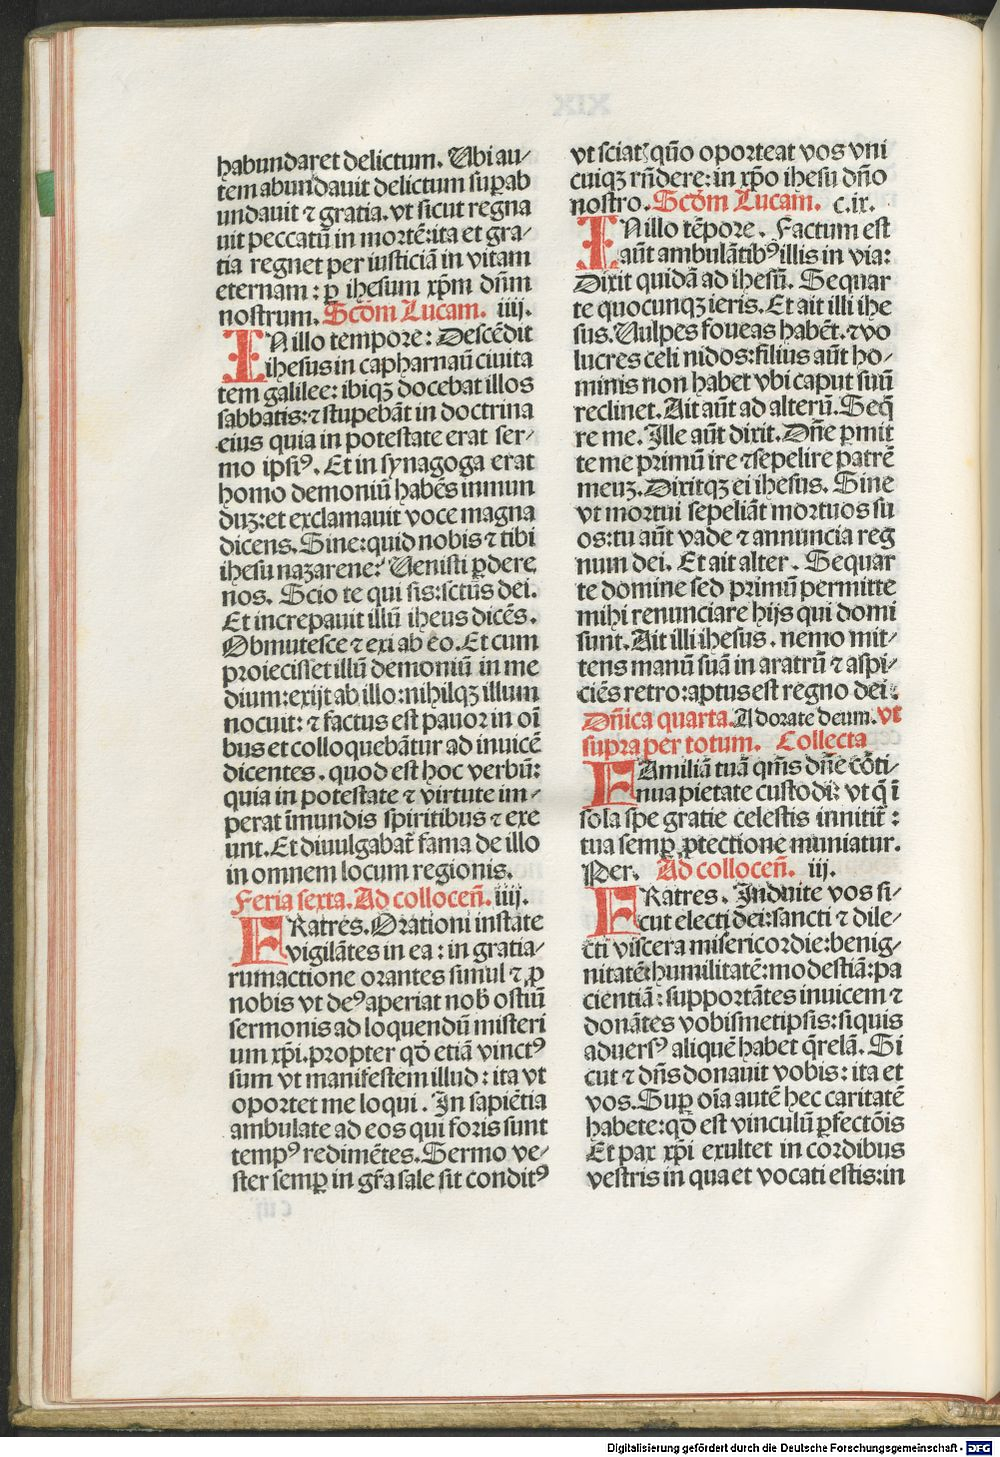 habundaret delictum. Ubi au⸗
tem abundauit delictum suꝑab
undauit ⁊ gratia. vt sicut regna
uit peccatū in mortē: ita et gra⸗
tia regnet per iusticiā in vitam
eternam: ꝑ ihesum xp̄m dn̄m
nostrum. Scd̄m Lucam. iiij.
IN illo tempore: Descēdit
ihesus in capharnaū ciuita
tem galilee: ibiqꝫ docebat illos
sabbatis: ⁊ stupebāt in doctrina
eius quia in potestate erat ser⸗
mo ipsiꝰ. Et in synagoga erat
homo demoniū habēs inmun
duꝫ: et exclamauit voce magna
dicens. Sine: quid nobis ⁊ tibi
ihesu nazarene: Uenisti ꝑdere
nos. Scio te qui sis: sctūs dei.
Et increpauit illū iheus dicēs.
Obmutesce ⁊ exi ab eo. Et cum
proiecisset illū demoniū in me
dium: exijt ab illo: nihilqꝫ illum
nocuit: ⁊ factus est pauor in oī
bus et colloquebātur ad inuicē
dicentes. quod est hoc verbū:
quia in potestate ⁊ virtute im⸗
perat īmundis spiritibus ⁊ exe
unt. Et diuulgabat̄ fama de illo
in omnem locum regionis.
Feria sexta. Ad collocen̄. iiij.
FRatres. Orationi instate
vigilātes in ea: in gratia⸗
rumactione orantes simul ⁊ ꝑ
nobis vt deꝰ aperiat nob̄ ostiū
sermonis ad loquendū misteri
um xp̄i. propter qd̄ etiā vinctꝰ
sum vt manifestem illud: ita vt
oportet me loqui. In sapiētia
ambulate ad eos qui foris sunt
tempꝰ redimētes. Sermo ve⸗
ster semꝑ in gr̄a sale sit conditꝰ
vt sciat: quō oporteat vos vni
cuiqꝫ rn̄dere: in xp̄o ihesu dn̄o
nostro. Scd̄m Lucam. c.ix.
IN illo tēpore. Factum est
aūt ambulātibꝰ illis in via:
Dixit quidā ad ihesū. Sequar
te quocunqꝫ ieris. Et ait illi ihe
sus. Uulpes foueas habēt. ⁊ vo
lucres celi nidos: filius aūt ho⸗
minis non habet vbi caput suū
reclinet. Ait aūt ad alterū. Seq̄
re me. Ille aūt dixit. Dn̄e ꝑmit
te me primū ire ⁊ sepelire patrē
meuꝫ. Dixitqꝫ ei ihesus. Sine
vt mortui sepeliāt mortuos su
os: tu aūt vade ⁊ annuncia reg
num dei. Et ait alter. Sequar
te domine sed primū permitte
mihi renunciare hijs qui domi
sunt. Ait illi ihesus. nemo mit⸗
tens manū suā in aratrū ⁊ aspi⸗
ciēs retro: aptus est regno dei:
Dn̄ica quarta. Adorate deum. vt
supra per totum. Collecta
FAmiliā tuā qm̄s dn̄e cōti⸗
nua pietate custodi: vt q̄ ī
sola spe gratie celestis innitit̄:
tua semꝑ ꝓtectione muniatur.
Per. Ad collocen̄. iij.
FRatres. Induite vos si⸗
cut electi dei: sancti ⁊ dile⸗
cti viscera misericordie: benig⸗
nitatē: humilitatē: modestiā: pa
cientiā: supportātes inuicem ⁊
donātes vobismetipsis: si quis
aduersꝰ aliquē habet q̄relā. Si
cut ⁊ dn̄s donauit vobis: ita et
vos. Suꝑ oīa autē hec caritatē
habete: qd̄ est vinculū ꝑfectōis
Et pax xp̄i exultet in cordibus
vestris in qua et vocati estis: in
Digitalisierung gefördert durch die Deutsche Forschungsgemeinschaft - DFG